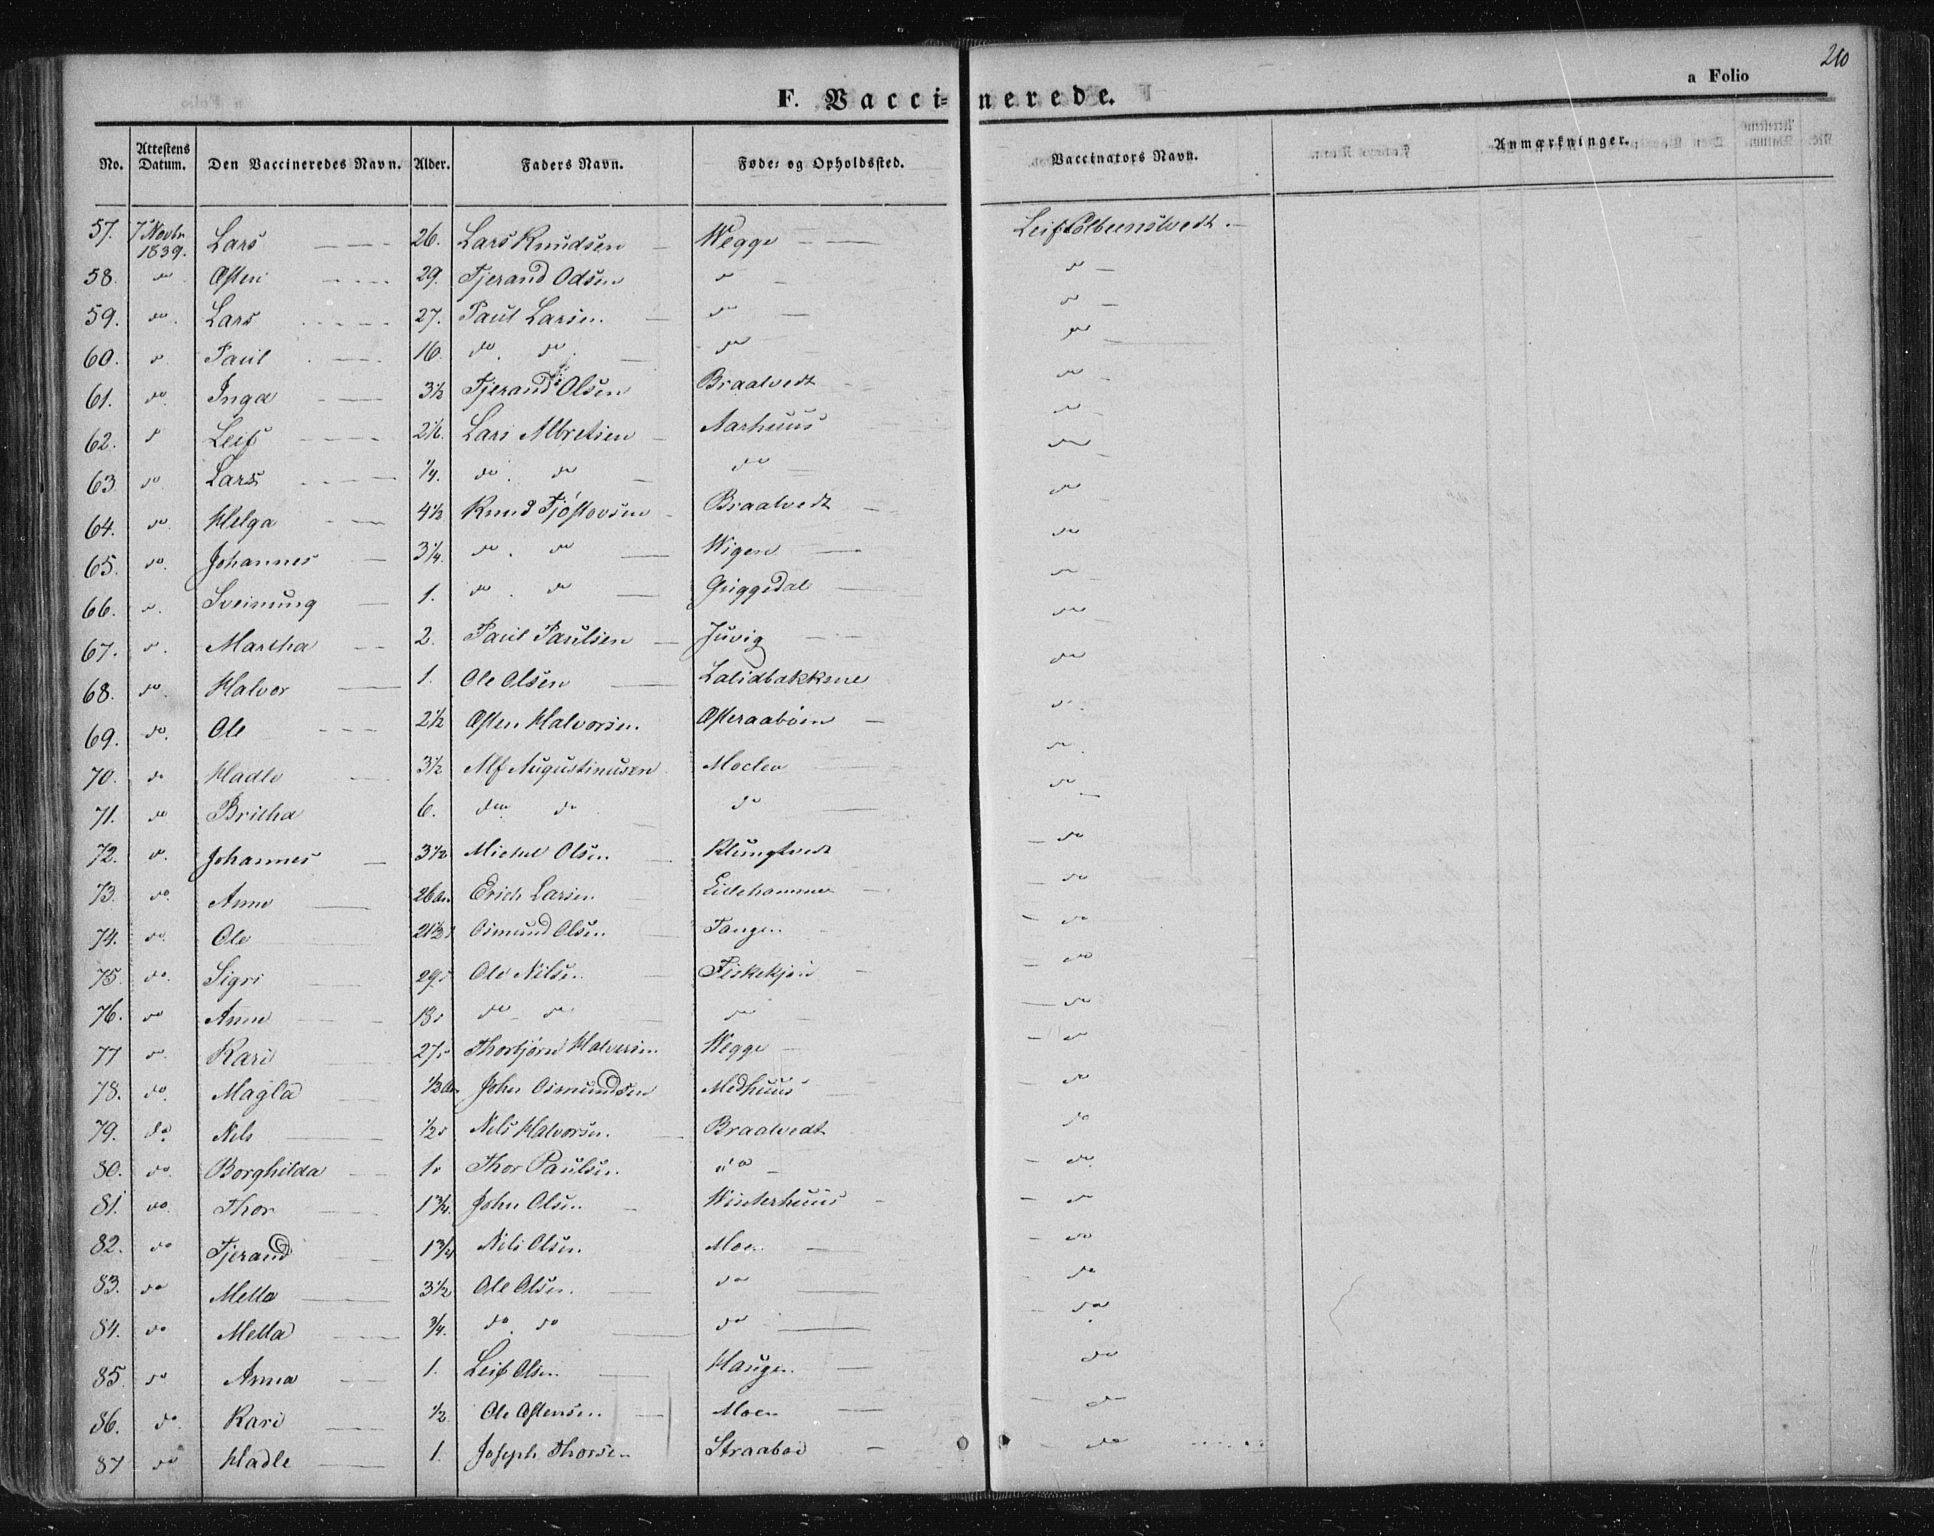 210
a Folio
F. Vaccinerede.
No. Attestens Datum. Den Vaccineredes Navn. Alder. Faders Navn. Føde- og Opholdssted. Vaccinators Navn. Anmærkninger.
57. 7 Novbr 1839. Lars 26. Lars Knudsen Wegge Leif
58. do Østen 29. Tjerand Odsen do do
59. do. Lars 27. Paul Larsen do do
60. do Paul 16. do. do. do do
61. do. Inga 3½ Tjerand Olsen Braatvedt do
62. do Leif 2½. Lars Albretsen Aarhuus do
63 do. Lars ¼. do. do do do
64. do. Helga 4½ Knud Tjøstovsen Braatvedt do
65. do. Johannes 3¼. do. do Wigen do
66. do. Sveinung 1. do. do Griggedal do
67. do. Martha 2. Paul Paulsen Juvig do
68. do. Halvor 1. Ole Olsen do
69. do. Ole 2½ Østen Halvorsen. Østeraabøen do.
70. do Hadle 3½ Alf Augustinusen Moclev do.
71. do Britha 6. do do do do
72. do. Johannes 3½ Michel Olsen Klungtvedt do
73. do. Anne 26 Erich Larsen do
74. do. Ole 21½ Osmund Olsen Tangen do
75. do. Sigri 29 Ole Nilsen Fiskekjøn do
76. do Anne 18 do do do do
77 do. Kari 27 Thorbjørn Halvorsen Wegge do
78. do. Magla ½ John Osmundsen Medhuus do
79. do Nils ½ Nils Halvorsen. Braatvedt do
80. do. Borghilda 1 Thor Paulsen do do.
81. do. Thor 1¾. John Olsen Winterhuus do
82. do Tjerand 1¾ Nils Olsen Moen do
83. do Metta 3½ Ole Olsen. do do
84. do Metta ¾. do. do do do
85 do Anna 1. Leif Olsen Haugen do
86. do Kari ½ Ole Østensen Moen do
87 do Hadle 1. Joseph Thorsen Straaboe do